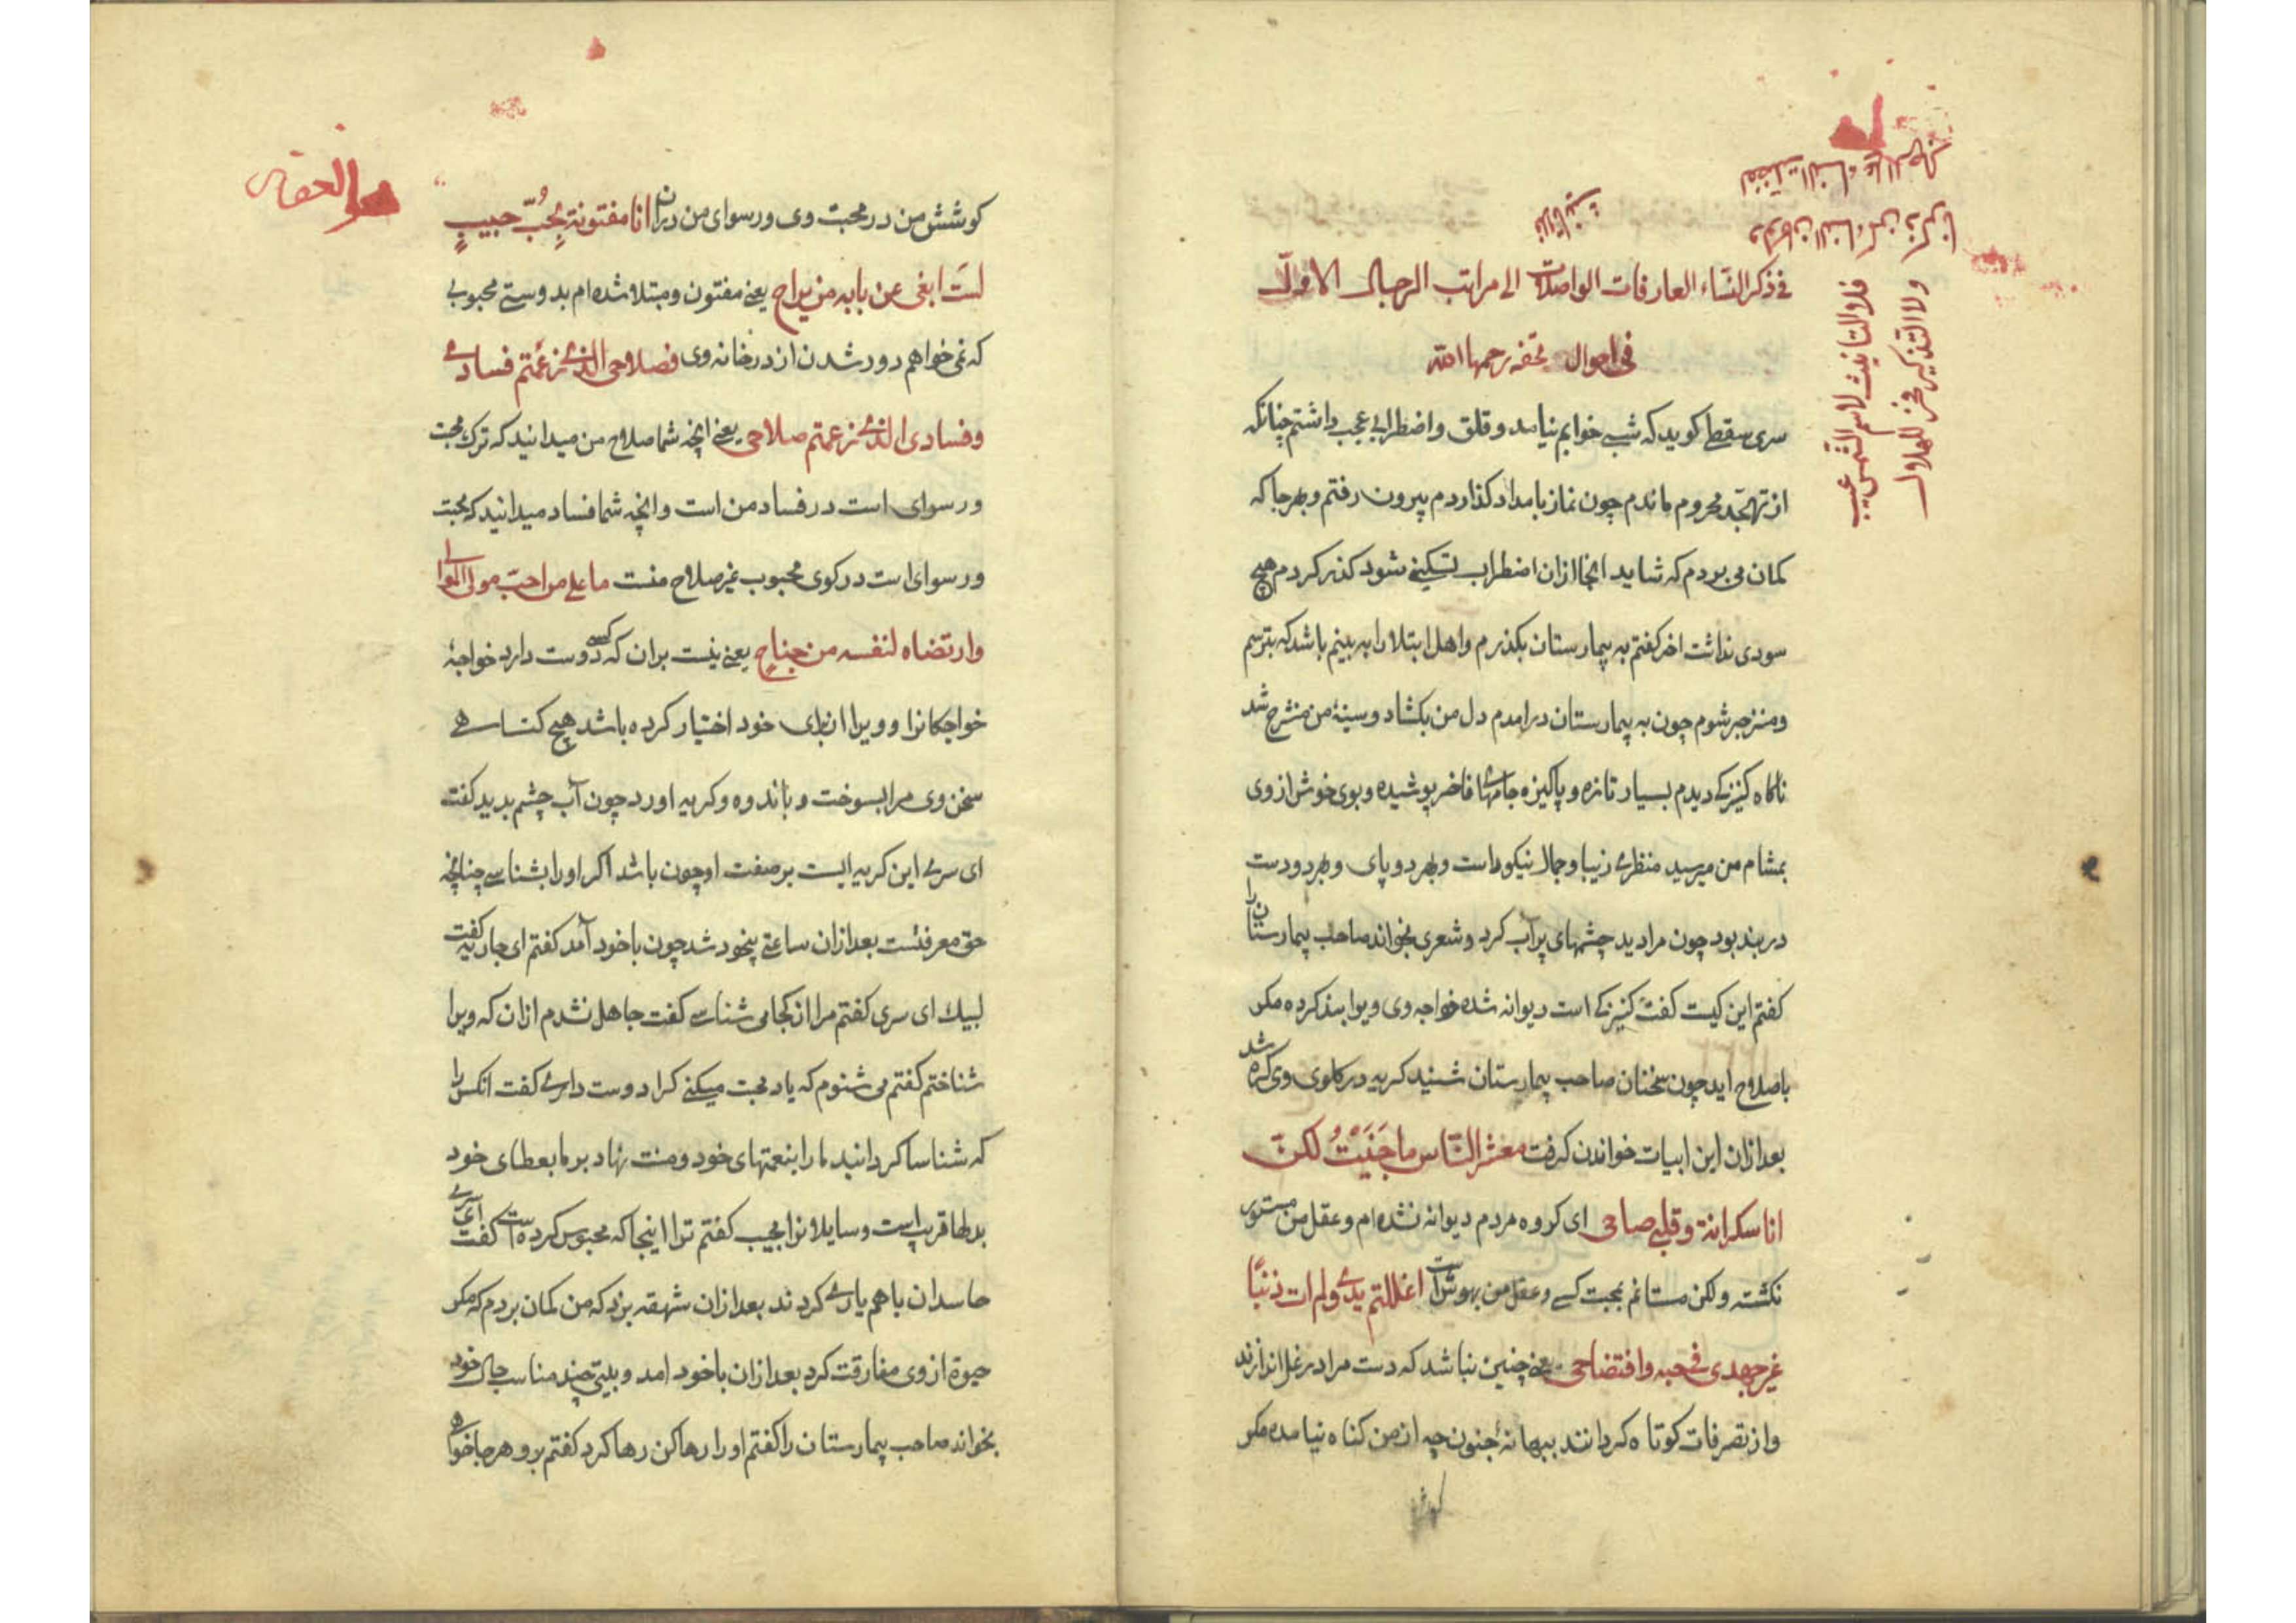 فی ذکر النساء العارفات الواصلات الی مراتب الرجال الاول
فی احوال تحفه رحمها الله
سری سقطی کوید که شبی خوابم نیامد و قلق و اضطرابی عجب داشتم چنانکه
از تهجّد محروم ماندم چون نماز بامداد کذاردم بیرون رفتم و بهرجا که
کمان می بردم که شاید انجا ازان اضطراب تسکینی شود کذر کردم هیچ
سودی نداشت اخر کفتم به بیمارستان بکذرم و اهل ابتلا را به بینم باشد که بترسم
و منزجر شوم چون به بیمارستان درامدم دل من بکشاد و سینهٔ من منشرح شد
ناکاه کنیزکی دیدم بسیار تازه و پاکیزه جامهای فاخر پوشیده و بوی خوش از وی
بمشام من میرسید منظری زیبا و جمال نیکو داست و بهر دو پای و بهر دو دست
در بند بود چون مرا دید چشمهای پر آب کرد و شعری بخواند صاحب بیمارستان را
کفتم این کیست کفت کنیزکی است دیوانه شده خواجه وی ویرا بند کرده مکر
باصلاح اید چون سخنان صاحب بیمارستان شنید کریه در کلوی وی کره شد
بعد ازان این ابیات خواندن کرفت معشر النّاس ما جَنَنْتُ لکن
انا سکرانة و قلبی صاحی ای کروه مردم دیوانه نشده ام و عقل من مستور
نکشته ولکن مستانم بمحبت کسی و عقل من بهوش است اغللتم یدی ولم ات ذنبًا
غیر جهدی فی حبه وافتضاحی یعنی چنین نباشد که دست مرا در غل اندازند
و از تصرفات کوتاه کردانند ببهانهٔ جنون چه از من کناه نیامده مکر
کوشش
فلا التانیث لاسم الشّمس عیب
ولا التذکیر فخر للهلال
کوشش من در محبت وی و رسوای من دران انا مفتونة بِحُبّ حبیبٍ
لستَ ابغی عن بابه من براح یعنی مفتون و مبتلا شده ام بدوستی محبوبی
که نمی خواهم دور شدن از در خانه وی فصلاحی الذی زعمتم فسادی
وفسادی الذی زعمتم صلاحی یعنی انچه شما صلاح من میدانید که ترک محبت
و رسوای است در فساد من است و انچه شما فساد میدانید که محبت
و رسوای است در کوی محبوب عین صلاح منست ما علی من احبّ مولی الموالی
وارتضاه لنفسه من جناحٍ یعنی نیست بران که کسی دوست دارد خواجهٔ
خواجکانرا و ویرا از برای خود اختیار کرده باشد هیچ کناهی
سخن وی مرا بسوخت و باندوه و کریه اورد چون آب چشم بدید کفت
ای سری این کریه ایست بر صفت او چون باشد اکر او را بشناسی چنانچه
حق معرفتست بعد ازان ساعتی بیخود شد چون با خود آمد کفتم ای جاریه کفت
لبیک ای سری کفتم مرا از کجا می شناسی کفت جاهل نشدم ازان که ویرا
شناختم کفتم می شنوم که یاد محبت میکنی کرا دوست داری کفت انکس را
که شناسا کردانید ما را بنعمتهای خود و منت نهاد بر ما بعطای خود
بدلها قریب است و سایلانرا مجیب کفتم ترا اینجا که محبوس کرده است کفت ای سری
حاسدان با هم یاری کردند بعد ازان شهقه بزد که من کمان بردم که مکر
حیوة از وی مفارقت کرد بعد ازان با خود امد و بیتی چند مناسب حال خود
بخواند صاحب بیمارستان را کفتم او را رها کن رها کرد کفتم برو هرجا خواهی